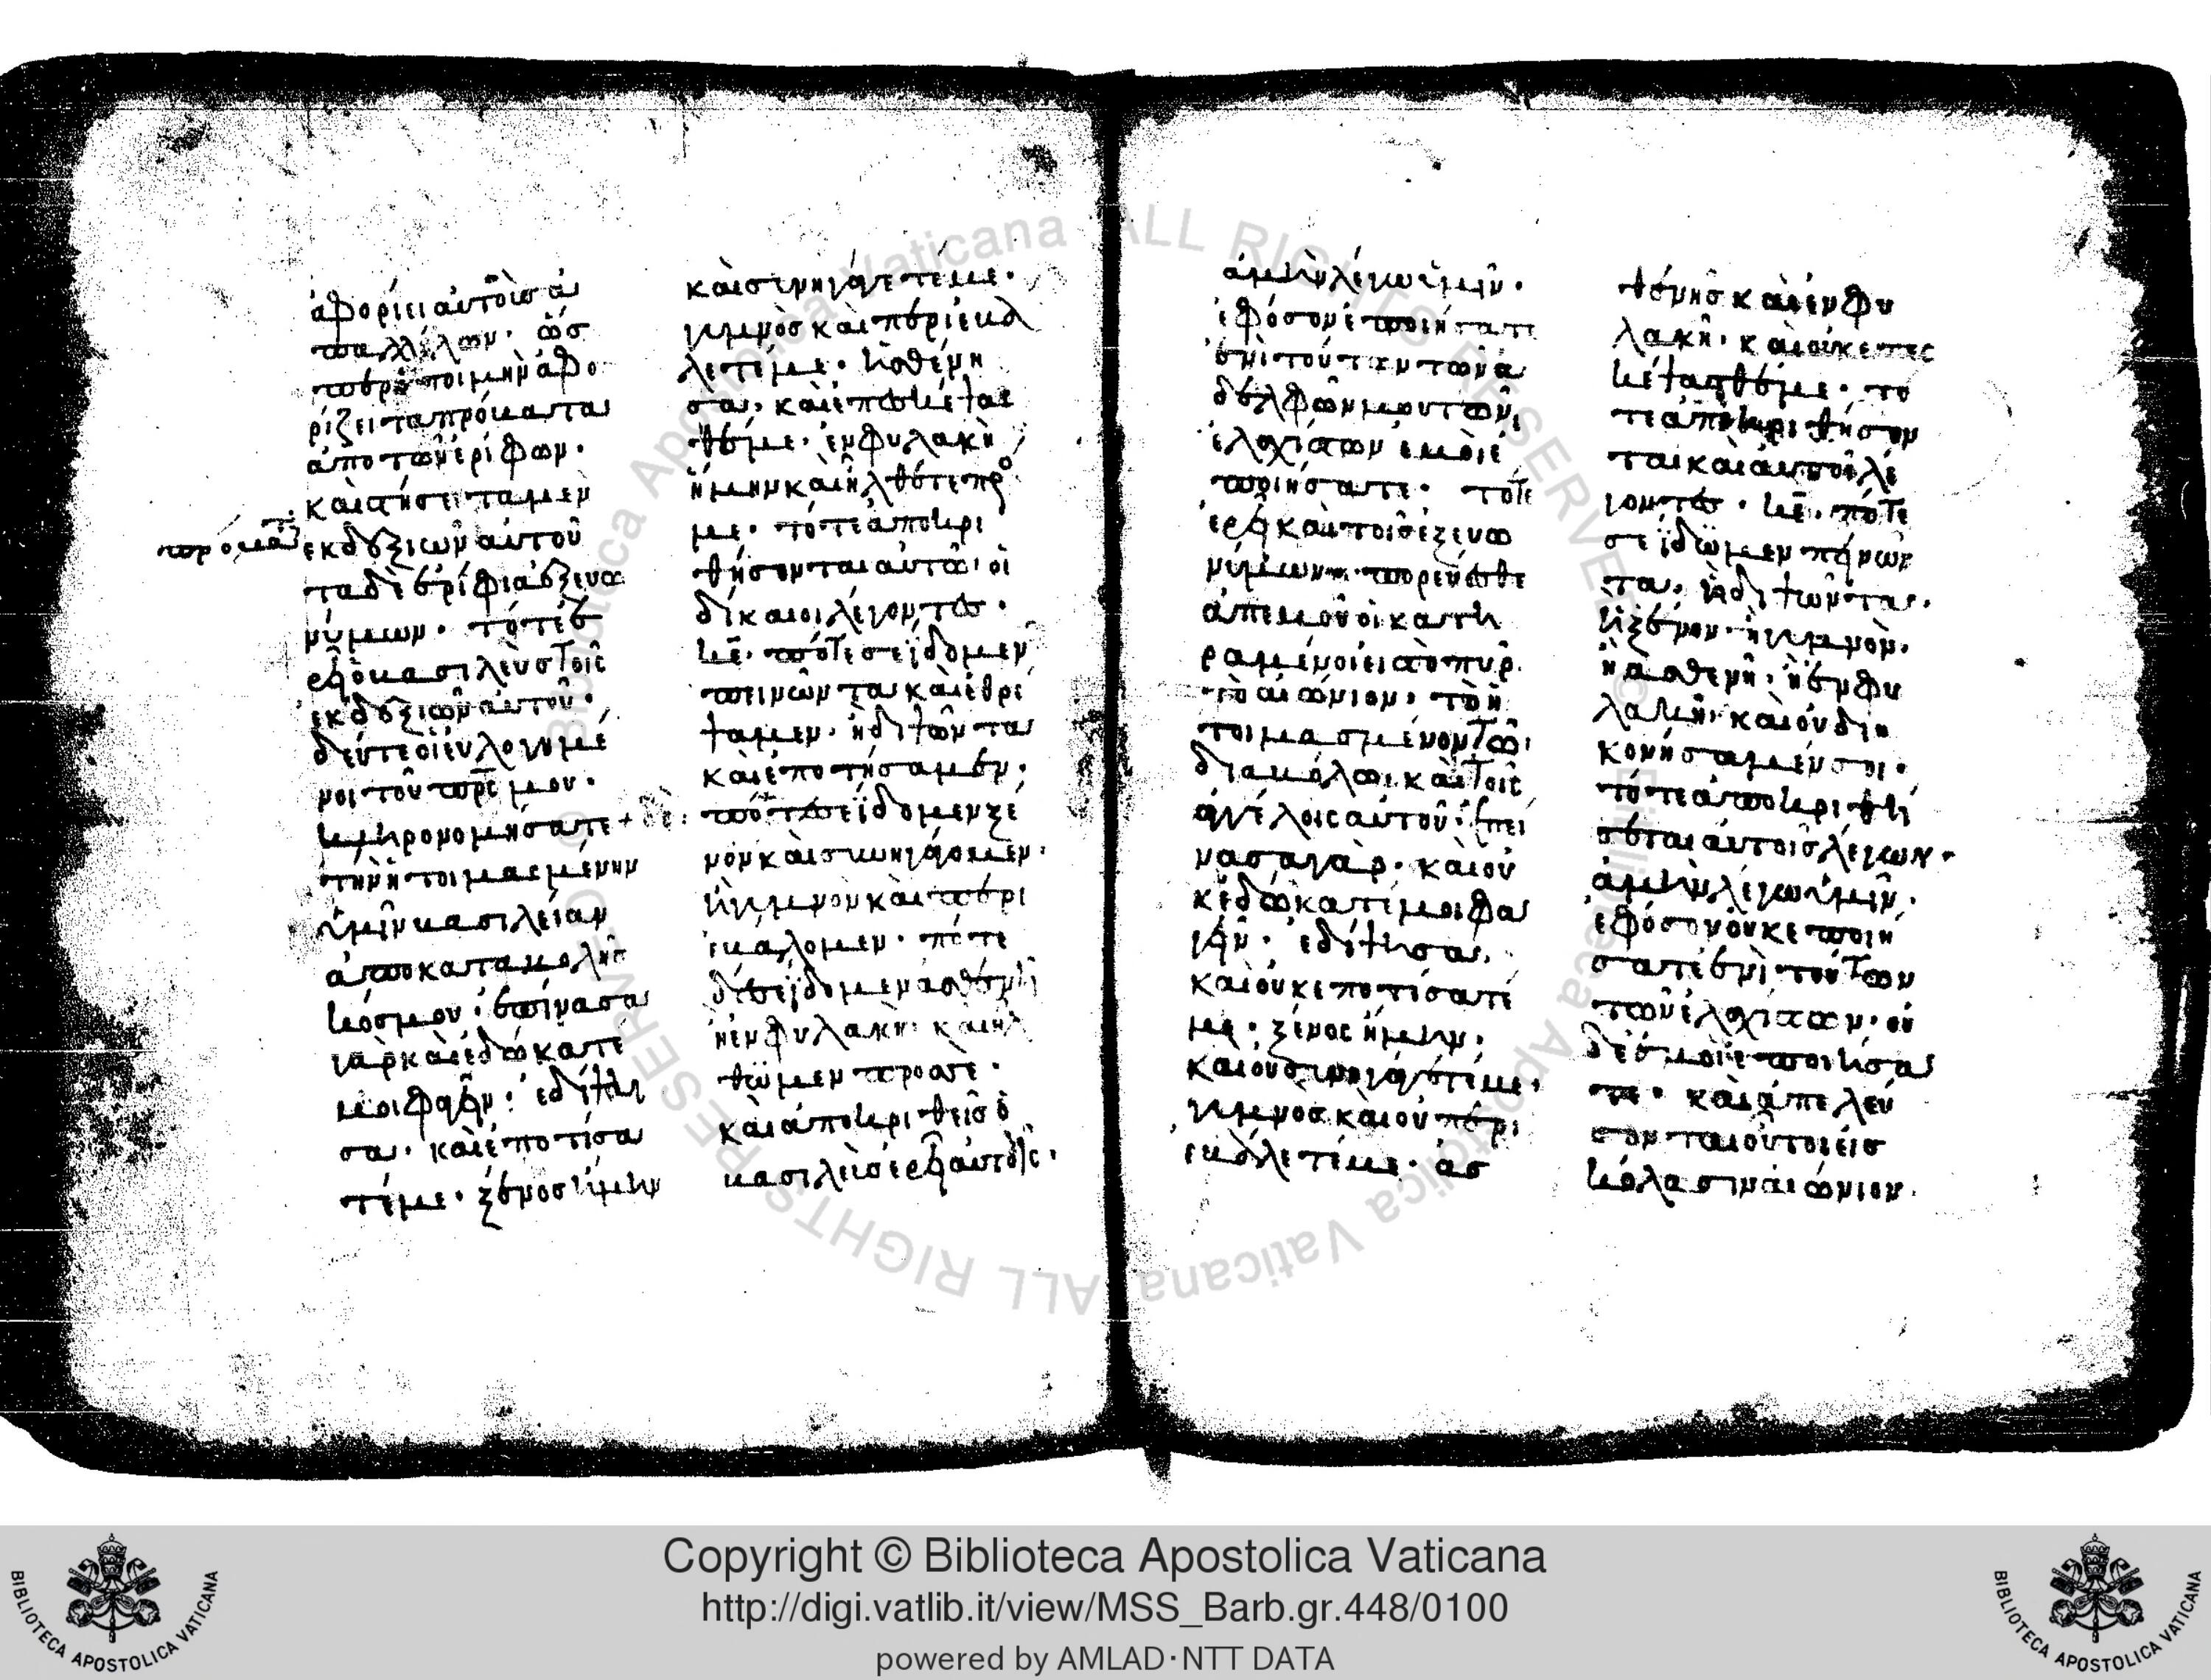 ἀφορίει αὐτοὺς ἀ
παλλήλων· ὥσ
περ ὁ ποιμὴν ἀφο
ρίζει τα πρόβατα
ἀπο τῶν ἐρίφων·
καὶ στήσει τα μεν
πρόβατα
ἐκ δεξιων αὐτοῦ
τα δὲ ἐρίφια ἐξ ευω
νύμων· τότε ἐ
ρεῖ ὁ βασιλεὺς τοῖς
ἐκ δεξιῶν αὐτοῦ·
δεύτε οἱ ευλογημέ
νοι τοῦ πρς μου·
κληρονομήσατε
τὴν ἡτοιμασμένην
ὑμῖν βασιλείαν
ἀπο καταβολῆς
κόσμου· ἐπίνασα
γὰρ καὶ ἐδώκατε
μοι φαγῆν· ἐδίψη
σα· καὶ ἐποτίσα
τέ με· ξένος ἤμην
καὶ συνηγάγετέ με·
γυμνὸς και περιεβά
λετέ με· ἠσθένη
σα· καὶ ἐπεσκέψασ
θέ με· ἐν φυλακὴ
ἤμην και ἤλθότε προ
με· τότε ἀποκρι
θήσονται αυτῶ οἱ
δίκαιοι λέγοντες·
κε· πότε σε ἴδομεν
πεινῶντα καὶ ἐθρέ
ψαμεν· ἢ διψῶντα
καὶ ἐποτήσαμεν·
πότε σε ἴδομεν ξέ
νον και συνηγάγομεν·
ἢ γυμνον και περι
εβάλομεν· πότε
δέ σε ἴδομεν ἀσθενῆ
ἢ ἐν φυλακὴ· και ήλ
θωμεν προσ σέ·
καὶ ἀποκριθεὶς ὁ
βασιλεὺς ερεῖ αυτοῖς·
ἀμὴν λέγω ὑμῖν·
ἐφόσον ἐποιήσατε
ἑνὶ τούτων τῶν ἀ
δελφῶν μου τῶν
ἐλαχίστων ἐμοὶ ἐ
ποιήσατε· τότε
ἐρεῖ καὶ τοῖς ἐξ ευω
νύμων· πορεύεσθε
ἀπεμοῦ οἱ κατη
ραμένοι εἰς τὸ πυρ
τὸ αἰώνιον· τὸ ἡ
τοιμασμένον τῶ
διαβόλω· καὶ τοῖς
ἀγγέλοις αὐτοῦ· ἐπεί
νασα γὰρ· καὶ οὐ
κ ἐδώκατέ μοι φα
γῆν· ἐδίψησα·
καὶ οὐκ ἐποτίσατέ
με· ξένος ἤμην·
καὶ οὐ συνηγάγετέ με·
γυμνος και οὐ περι
εβάλετέ με· ἀσ
θένης καὶ ἐν φυ
λακῆ· καὶ οὐκ επεσ
κέψασθέ με· το
τε ἀποκριθήσον
ται και αυτοῖ λέ
γοντες· κε· πότε
σε ἴδωμεν πεινῶν
τα· ἢ διψῶντα·
ἢ ξένον· ἢ γυμνὸν·
ἢ ἀσθενῆ· ἢ ἐν φυ
λακῆ· καὶ οὐ διη
κονήσαμέν σοι·
τότε ἀποκριθή
σεται αὐτοῖς λέγων·
ἀμὴν λέγω ὑμῖν·
ἐφόσον οὐκ ἐποιή
σατε ἑνὶ τούτων
τῶν ἐλαχίστων· οὐ
δὲ ἐμοὶ ἐποιήσα
τε· καὶ ἀπελεύ
σονται οὗτοι εἰς
κόλασιν αἰώνιον·
Copyright © Biblioteca Apostolica Vaticana
http://digi.vatlib.it/view/MSS_Barb.gr.448/0100
powered by AMLAD·NTT DATA
BIBLIOTECA APOSTOLICA VATICANA
BIBLIOTECA APOSTOLICA VATICANA